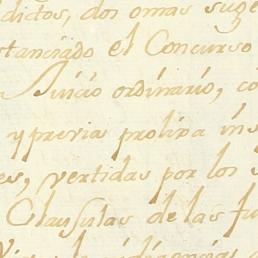 dictos, dos omas suge
stanciado el Concurso
Juicio ordinario, co
y previa prolixa ins
es, vertidas por los s
Clausulas de las fu